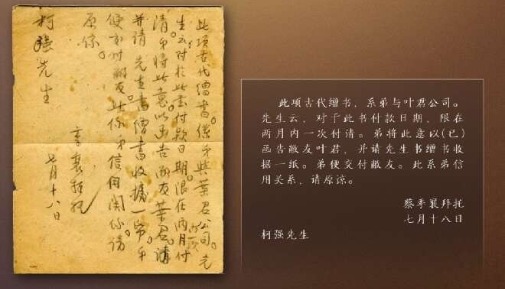 此項古代繒書係弟與葉君公司。先
生云對於此書付款日期限在兩月付
清。弟將此意以函告敝友葉君。
并請 先生書繒書收據一紙。弟
便交付敝友。此係弟信用關係請
原諒。
蔡季襄拜托
七月十八日
柯强先生
此项古代缯书，系弟与叶君公司。
先生云，对于此书付款日期，限在
两月内一次付清。弟将此意以(已)
函告敝友叶君，并请先生书缯书收
据一纸。弟便交付敝友。此系弟信
用关系，请原谅。
蔡季襄拜托
七月十八日
柯强先生